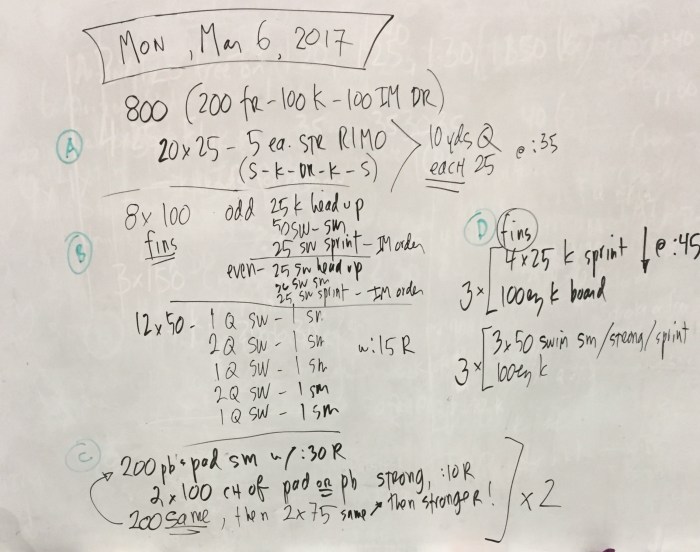 MON, Mar 6, 2017
800 (200 fr - 100 K - 100 IM DR)
A
20 x 25 - 5 ea. STR RIMO
(S - K - DR - K - S)
10 yds Q
each 25
@ :35
B
8 x 100 odd 25 k head up
fins
50 sw - sm
25 sw sprint - IM order
even - 25 sw head up
sw sm
25 sw sprint - IM order
12 x 50 - 1 Q SW - 1 sm
2Q SW - 1 sm
1Q SW - 1 sm
2Q SW - 1 sm
1Q SW - 1 sm
w :15 R
C
200 pb & pad sm w/ :30 R
2 x 100 CH of pad or pb strong, :10 R
200 same, then 2 x 75 same, then stronger!
x 2
D fins
4 x 25 k sprint ↓ @ :45
3 x
100 ez k board
3 x 50 swim sm/strong/sprint
3 x
100 ez k